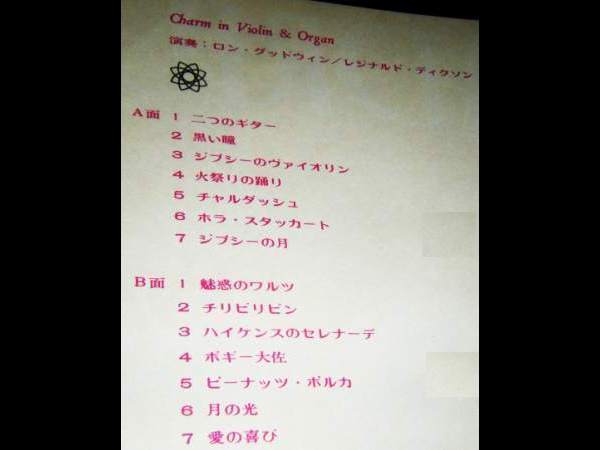 Charm in Violin & Organ
演奏：ロン・グッドウィン／レジナルド・ディクソン
A面 1 二つのギター
2 黒い瞳
3 ジプシーのヴァイオリン
4 火祭りの踊り
5 チャルダッシュ
6 ホラ・スタッカート
7 ジプシーの月
B面 1 魅惑のワルツ
2 チリビリビン
3 ハイケンスのセレナーデ
4 ボギー大佐
5 ピーナッツ・ポルカ
6 月の光
7 愛の喜び